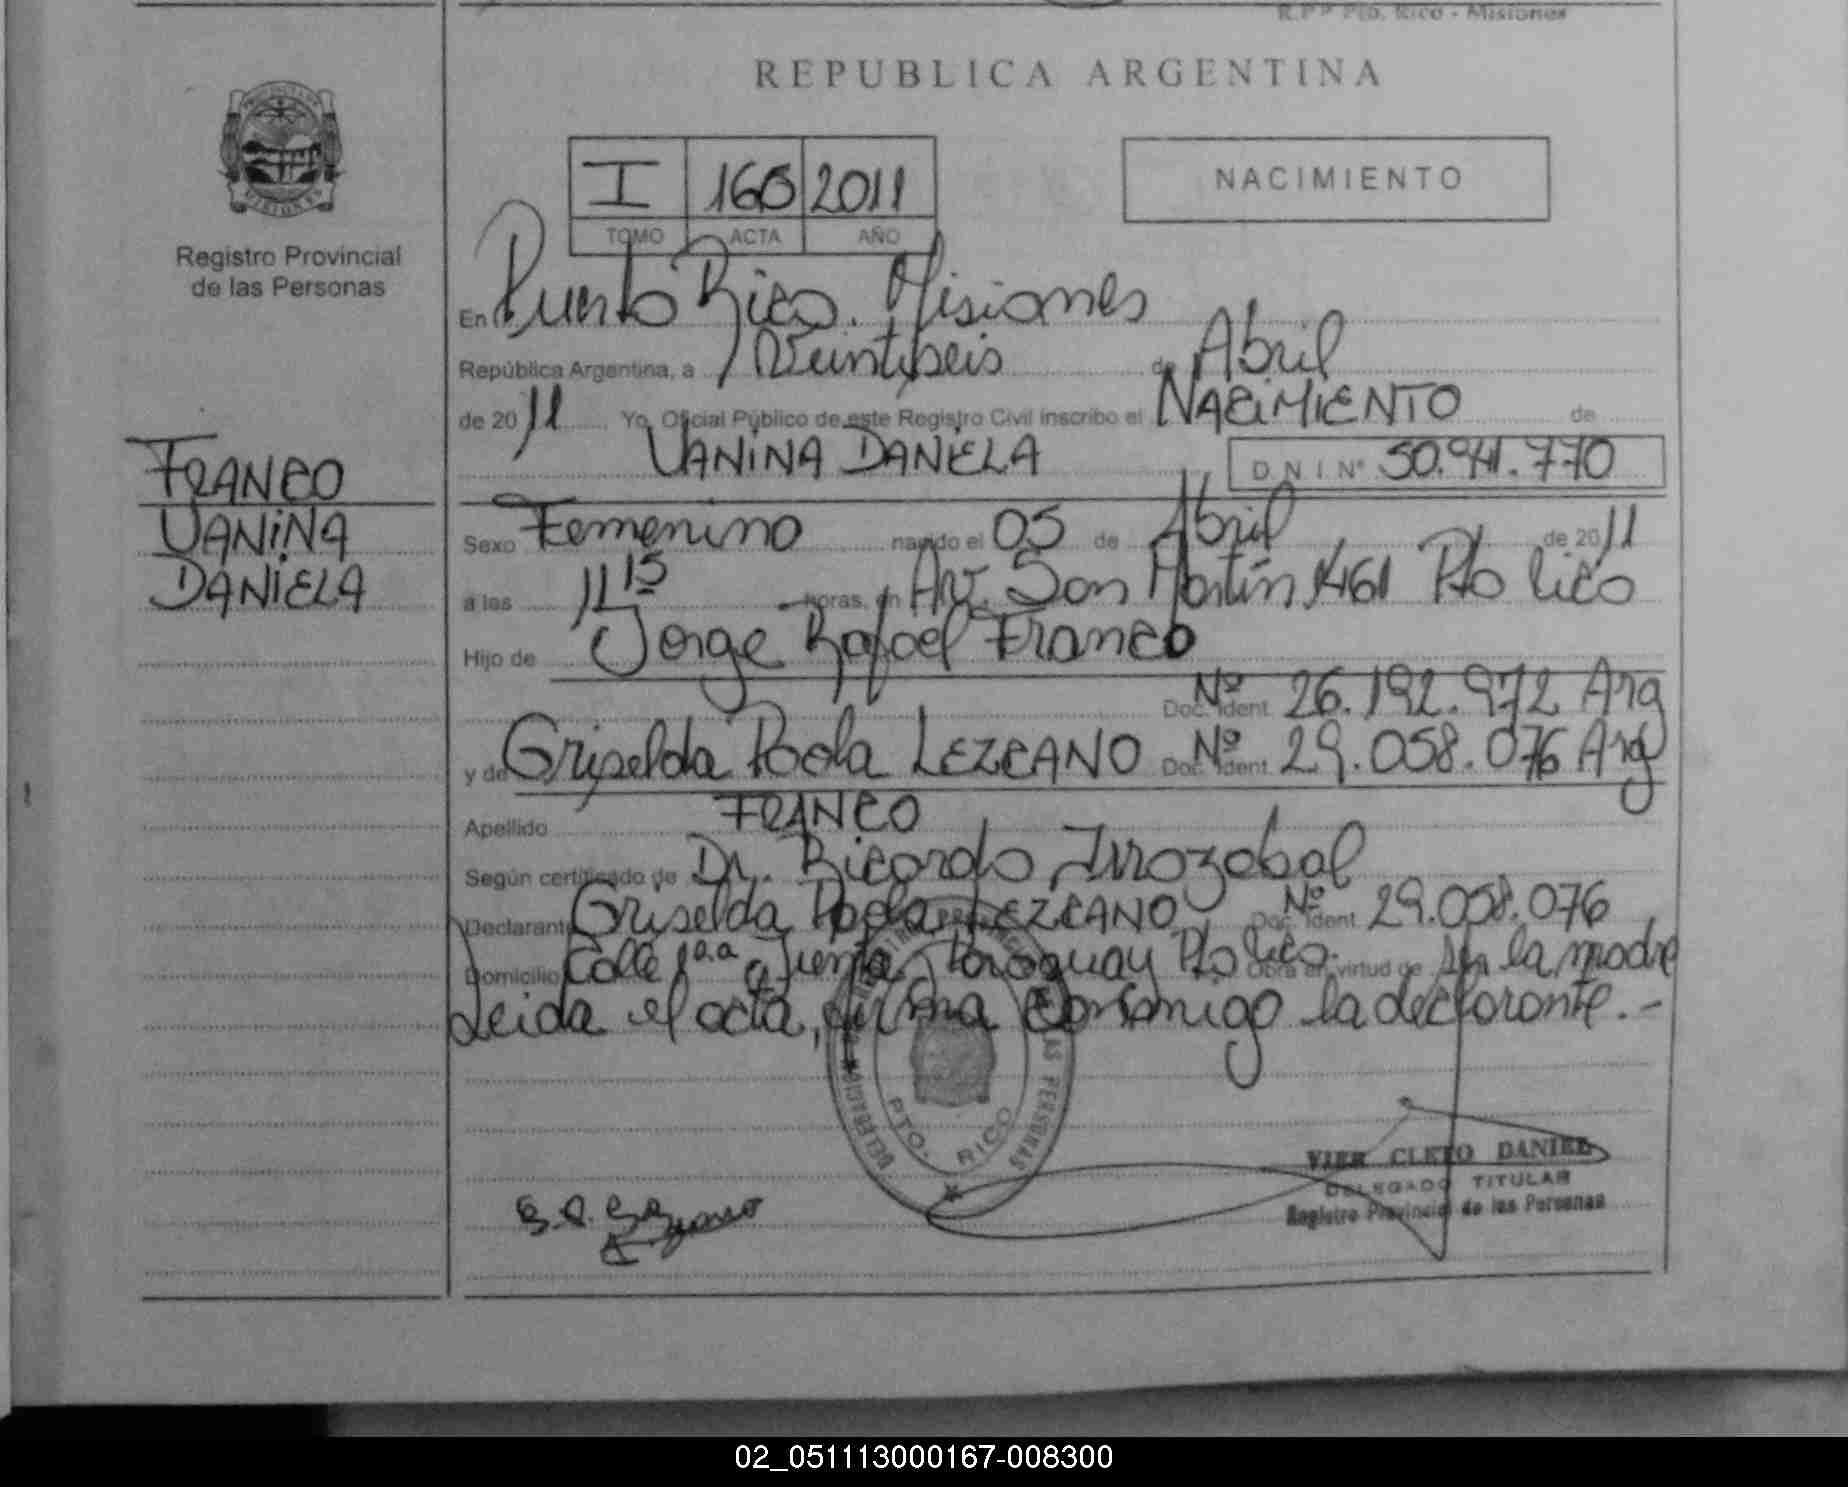 R.P.P Pto. Rico - Misiones
REPUBLICA ARGENTINA
NACIMIENTO
I 2011
TOMO ACTA AÑO
Registro Provincial
de las Personas
En Puerto Rico. Misiones
República Argentina, a Veintiseis de Abril
de 2011 Yo, Oficial Público de este Registro Civil inscribo el NACIMIENTO de
VANINA DANIELA D N I Nº 50.941.770
FRANCO
VANINA
DANIELA
Sexo Femenino nacido el 05 de Abril de 2011
a las 11 15 horas, en Av. San Martín 1461 Pto Rico
Hijo de Jorge Rafael Franco
Doc. Ident. Nº 26.192.972 Arg
y de Griselda Paola LEZCANO Doc. Ident. Nº 29.058.076 Arg
Apellido FRANCO
Según certificado de Dr. Ricardo Irrazabal
Declarante Griselda Paola LEZCANO Doc. Ident. Nº 29.058.076
Domicilio Calle Paraguay Pto Rico. Obra en virtud de ser la madre
Leida el acta, firma conmigo la declarante.-
DELEGACION REGISTRO PROVINCIAL DE LAS PERSONAS
PTO. RICO
VIER CLETO DANIEL
DELEGADO TITULAR
Registro Provincial de las Personas
02_051113000167-008300